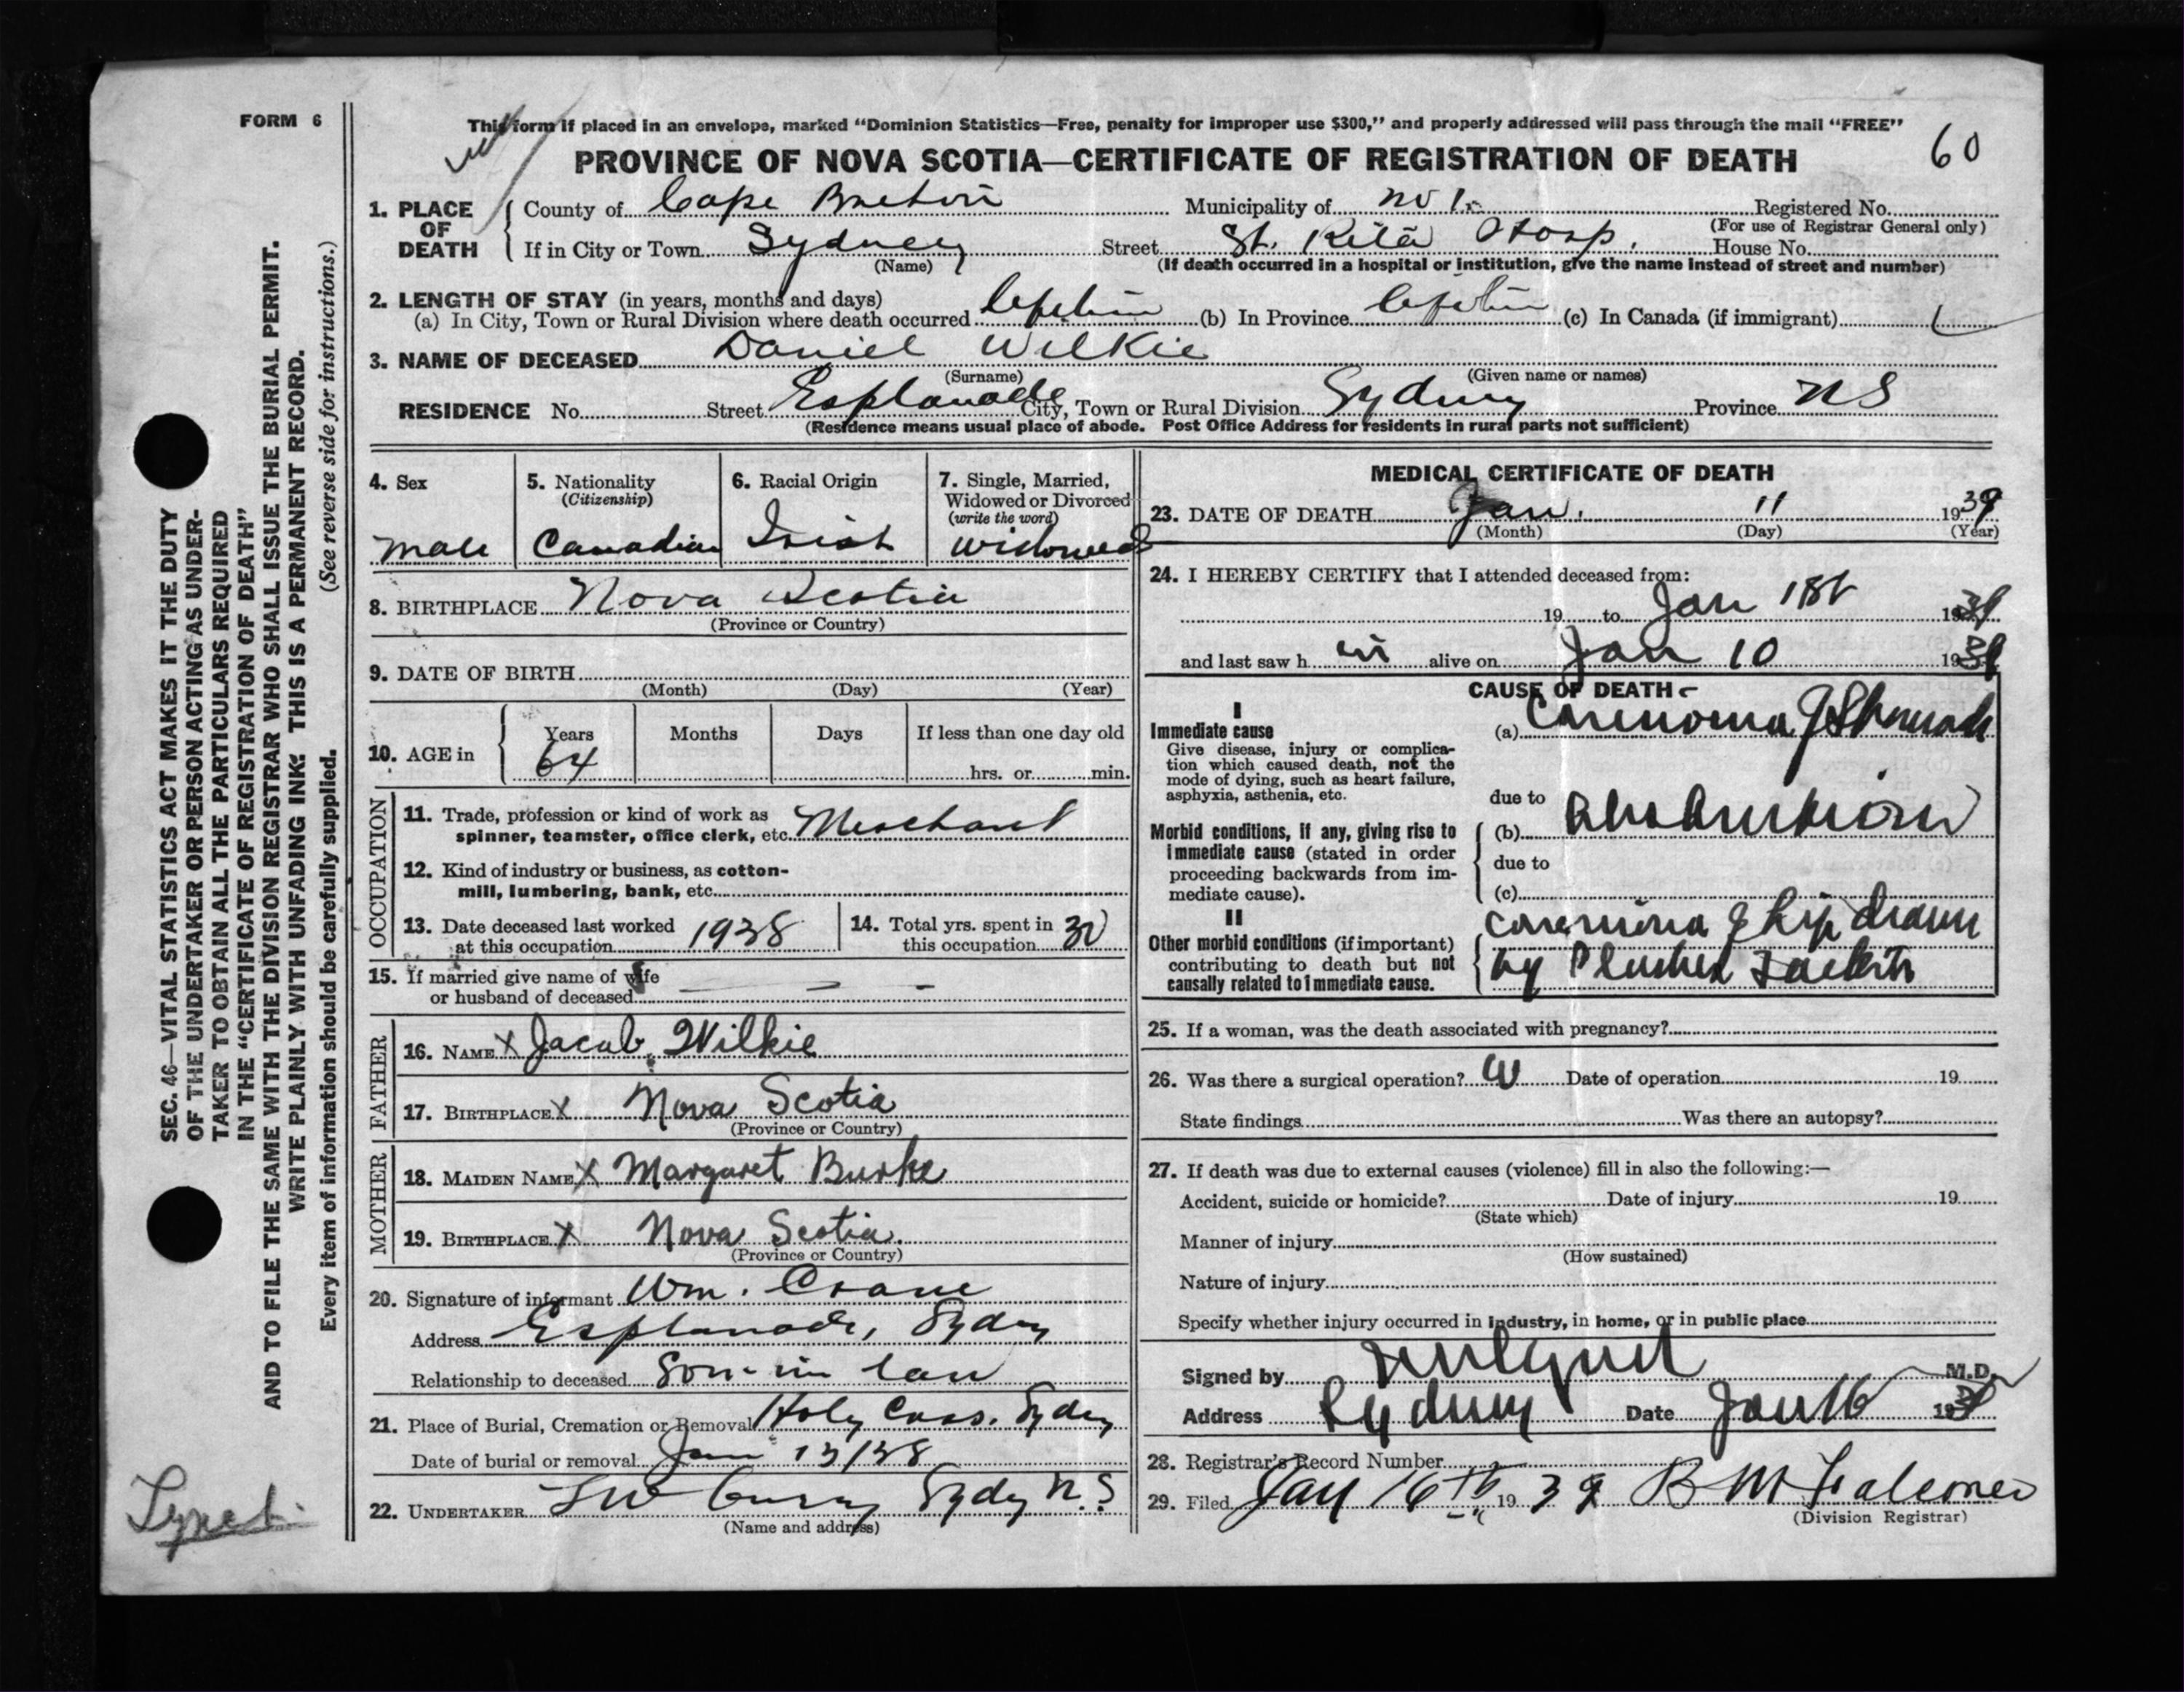 FORM 6
This form if placed in an envelope, marked “Dominion Statistics—Free, penalty for improper use $300,” and properly addressed will pass through the mail “FREE”
PROVINCE OF NOVA SCOTIA—CERTIFICATE OF REGISTRATION OF DEATH
60
1. PLACE OF DEATH
County of Cape Breton Municipality of No 1 Registered No.
(For use of Registrar General only)
If in City or Town Sydney Street St. Rita Hosp. House No.
(Name) (If death occurred in a hospital or institution, give the name instead of street and number)
2. LENGTH OF STAY (in years, months and days)
(a) In City, Town or Rural Division where death occurred (b) In Province (c) In Canada (if immigrant)
3. NAME OF DECEASED Daniel Wilkie
(Surname) (Given name or names)
RESIDENCE No. Street Esplanade City, Town or Rural Division Sydney Province NS
(Residence means usual place of abode. Post Office Address for residents in rural parts not sufficient)
4. Sex
Male
5. Nationality
(Citizenship)
Canadian
6. Racial Origin
Irish
7. Single, Married,
Widowed or Divorced
(write the word)
Widowed
8. BIRTHPLACE Nova Scotia
(Province or Country)
9. DATE OF BIRTH
(Month) (Day) (Year)
10. AGE in
Years Months Days If less than one day old
64 hrs. or min.
OCCUPATION
11. Trade, profession or kind of work as
spinner, teamster, office clerk, etc. Merchant
12. Kind of industry or business, as cotton-
mill, lumbering, bank, etc.
13. Date deceased last worked
at this occupation 1938
14. Total yrs. spent in
this occupation 30
15. If married give name of wife
or husband of deceased
FATHER
16. NAME X Jacob Wilkie
17. BIRTHPLACE X Nova Scotia
(Province or Country)
MOTHER
18. MAIDEN NAME X Margaret Burke
19. BIRTHPLACE X Nova Scotia.
(Province or Country)
20. Signature of informant Wm. Crane
Address Esplanade, Sydney
Relationship to deceased Son-in law
21. Place of Burial, Cremation or Removal Holy Cross. Sydney
Date of burial or removal Jan 13/38
22. UNDERTAKER Sydney N.S
(Name and address)
MEDICAL CERTIFICATE OF DEATH
23. DATE OF DEATH Jan. 11 1939
(Month) (Day) (Year)
24. I HEREBY CERTIFY that I attended deceased from:
19 to Jan 1939
and last saw h im alive on Jan 10 1939
CAUSE OF DEATH
I
Immediate cause
Give disease, injury or complica-
tion which caused death, not the
mode of dying, such as heart failure,
asphyxia, asthenia, etc.
(a) Carcinoma of Stomach
due to
Morbid conditions, if any, giving rise to
immediate cause (stated in order
proceeding backwards from im-
mediate cause).
(b) Obstruction
due to
(c)
II
Other morbid conditions (if important)
contributing to death but not
causally related to immediate cause.
Carcinoma of Lip
by
25. If a woman, was the death associated with pregnancy?
26. Was there a surgical operation? Date of operation 19
State findings Was there an autopsy?
27. If death was due to external causes (violence) fill in also the following:—
Accident, suicide or homicide? Date of injury 19
(State which)
Manner of injury
(How sustained)
Nature of injury
Specify whether injury occurred in industry, in home, or in public place
Signed by M.D.
Address Sydney Date Jan 16 1939
28. Registrar's Record Number
29. Filed Jan 16th 1939 B M Falconer
(Division Registrar)
SEC. 46—VITAL STATISTICS ACT MAKES IT THE DUTY
OF THE UNDERTAKER OR PERSON ACTING AS UNDER-
TAKER TO OBTAIN ALL THE PARTICULARS REQUIRED
IN THE “CERTIFICATE OF REGISTRATION OF DEATH”
AND TO FILE THE SAME WITH THE DIVISION REGISTRAR WHO SHALL ISSUE THE BURIAL PERMIT.
WRITE PLAINLY WITH UNFADING INK: THIS IS A PERMANENT RECORD.
Every item of information should be carefully supplied. (See reverse side for instructions.)
Lynch